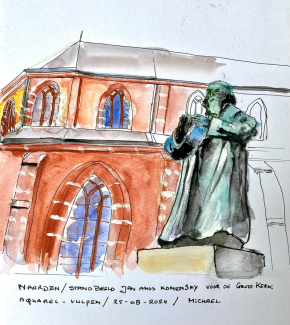 NAARDEN / STANDBEELD JAN AMOS KOMENSKY VOOR DE GROTE KERK
AQUAREL - VULPEN / 25-08-2024 / MICHAEL